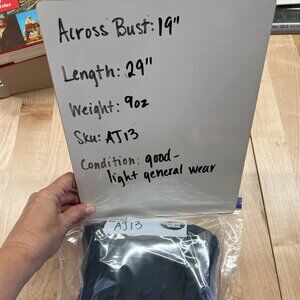 Across Bust: 19"
Length: 29"
Weight: 9oz
Sku: AJ13
Condition: good -
light general wear
AJ13